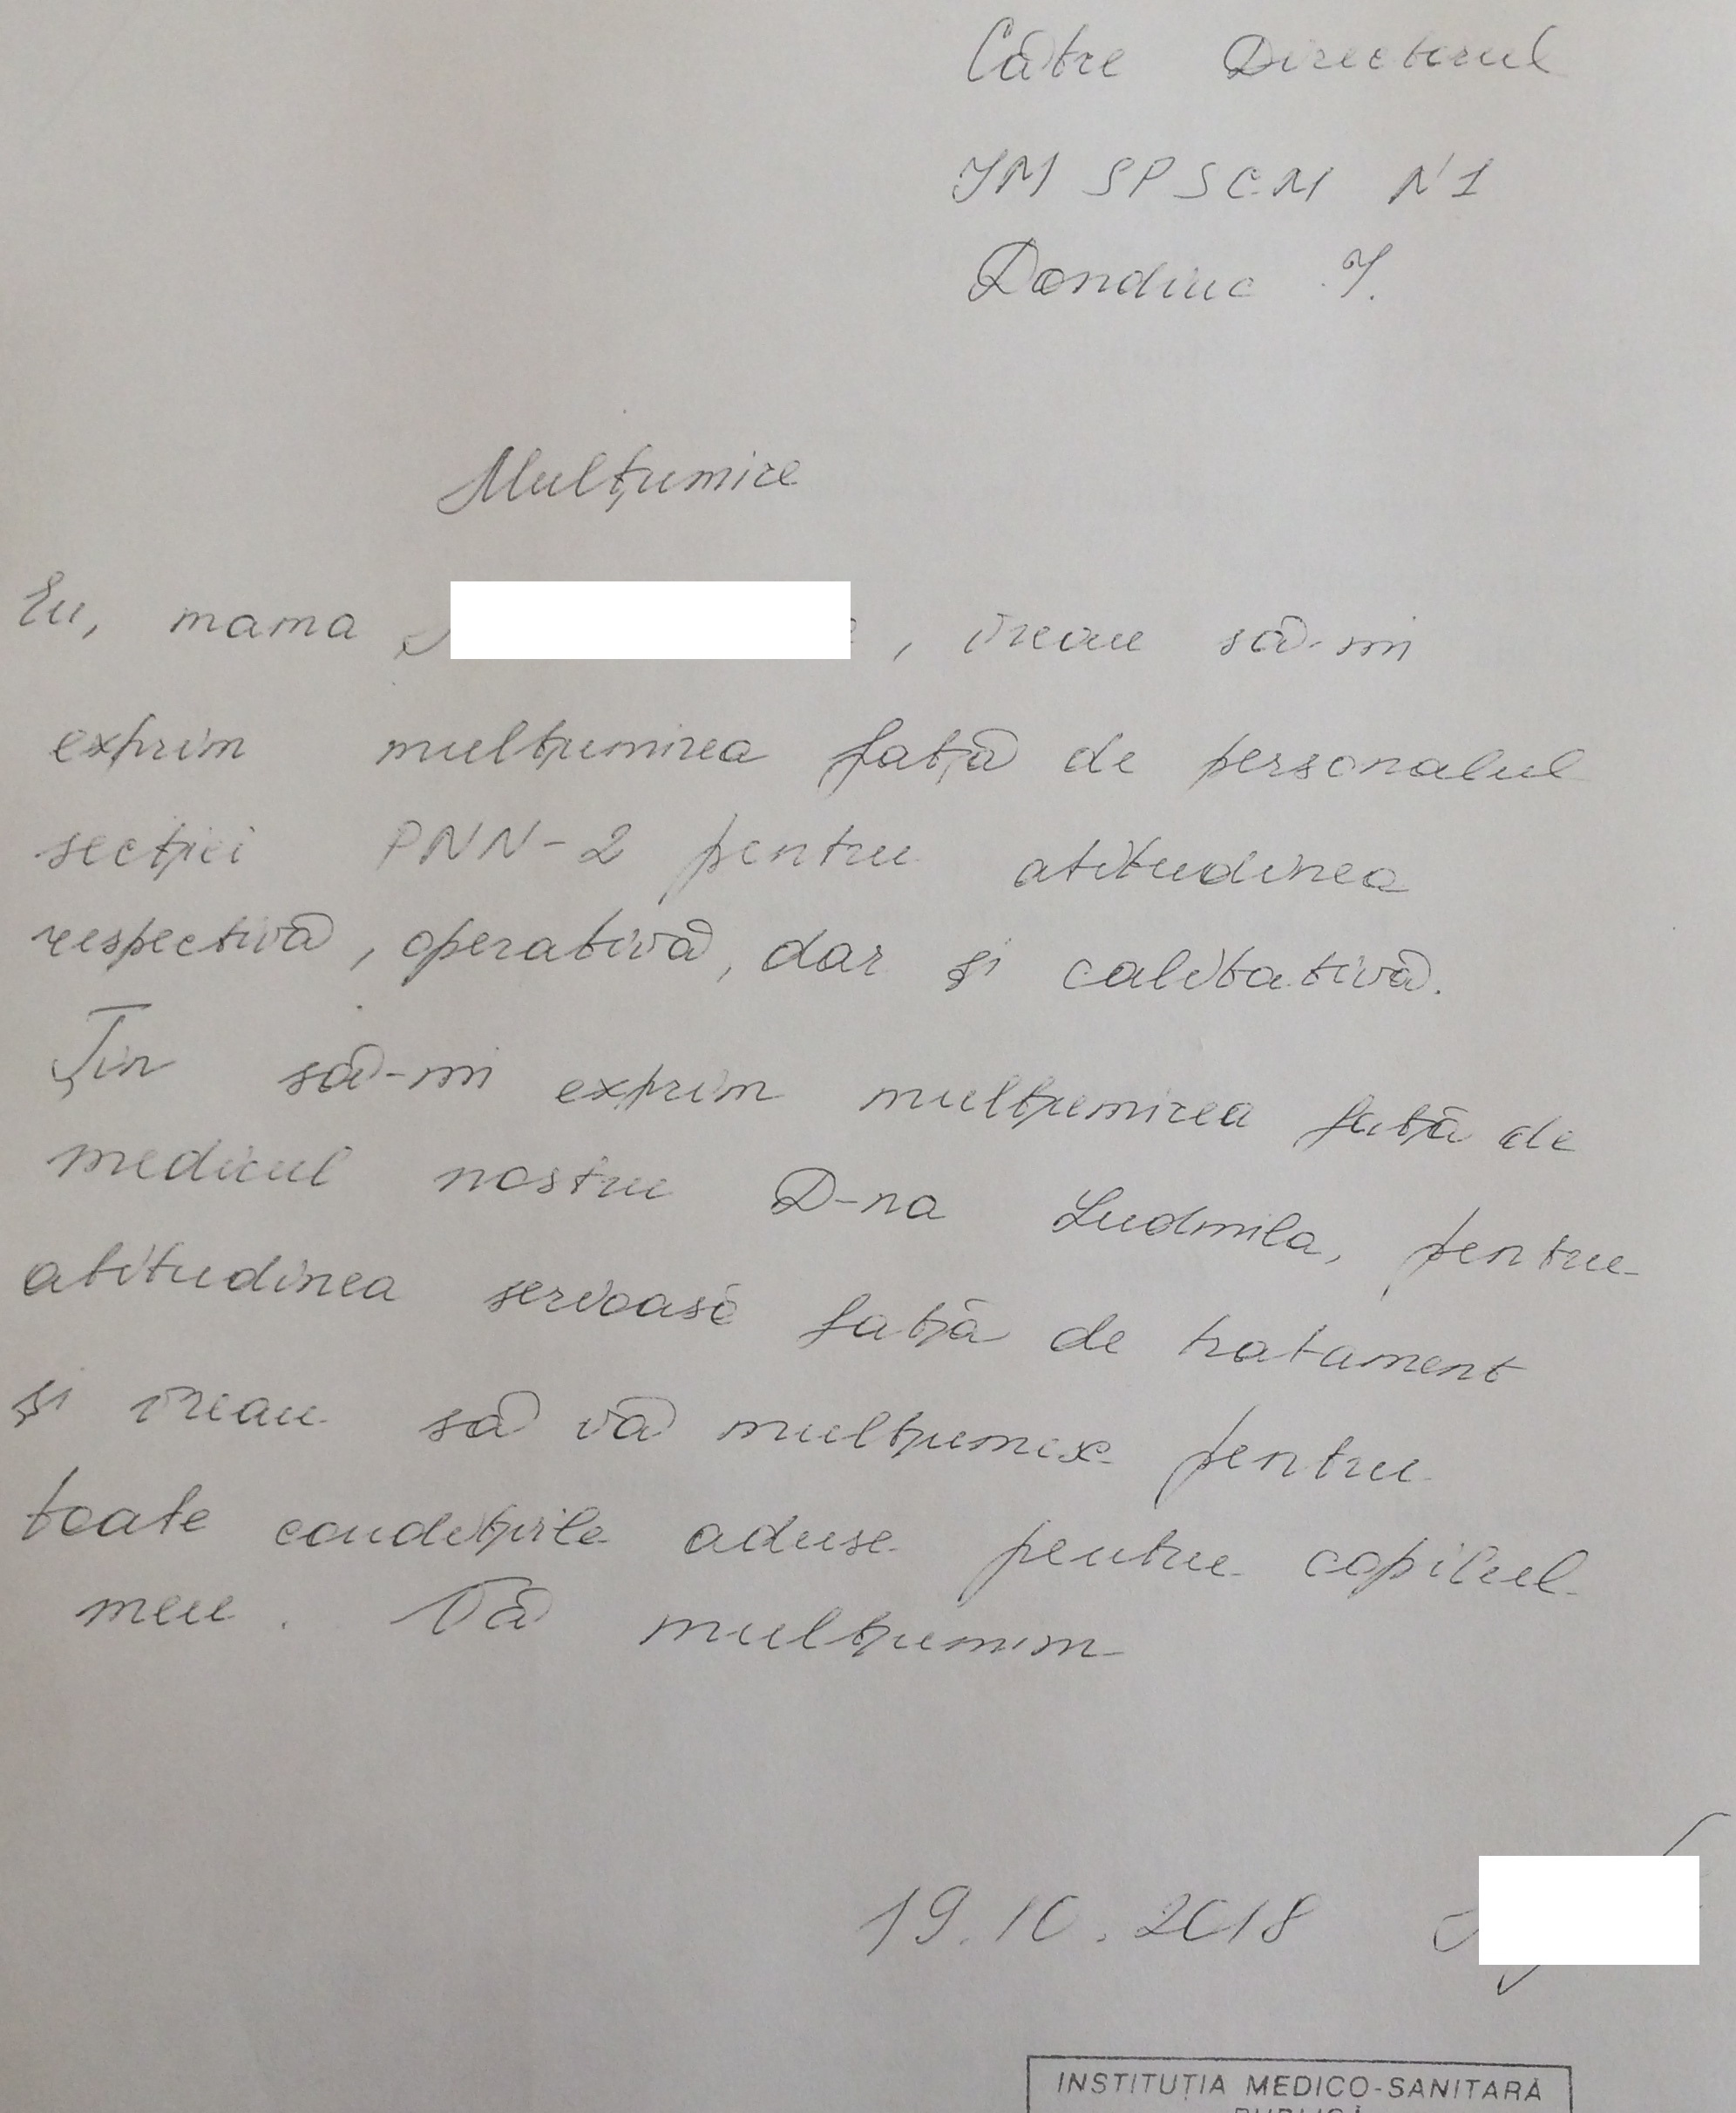 Către Directorul
IM SPSCM N1
Dandiuc I.
Mulțumire
Eu, mama , vreau să-mi
exprim mulțumirea față de personalul
secției PNN-2 pentru atitudinea
respectivă, operativă, dar și calitativă.
Țin să-mi exprim mulțumirea față de
medicul nostru D-na Ludmila, pentru
atitudinea serioasă față de tratament
și vreau să vă mulțumesc pentru
toate condițiile aduse pentru copilul
meu. Vă mulțumim
19.10.2018
INSTITUȚIA MEDICO-SANITARĂ
PUBLICĂ